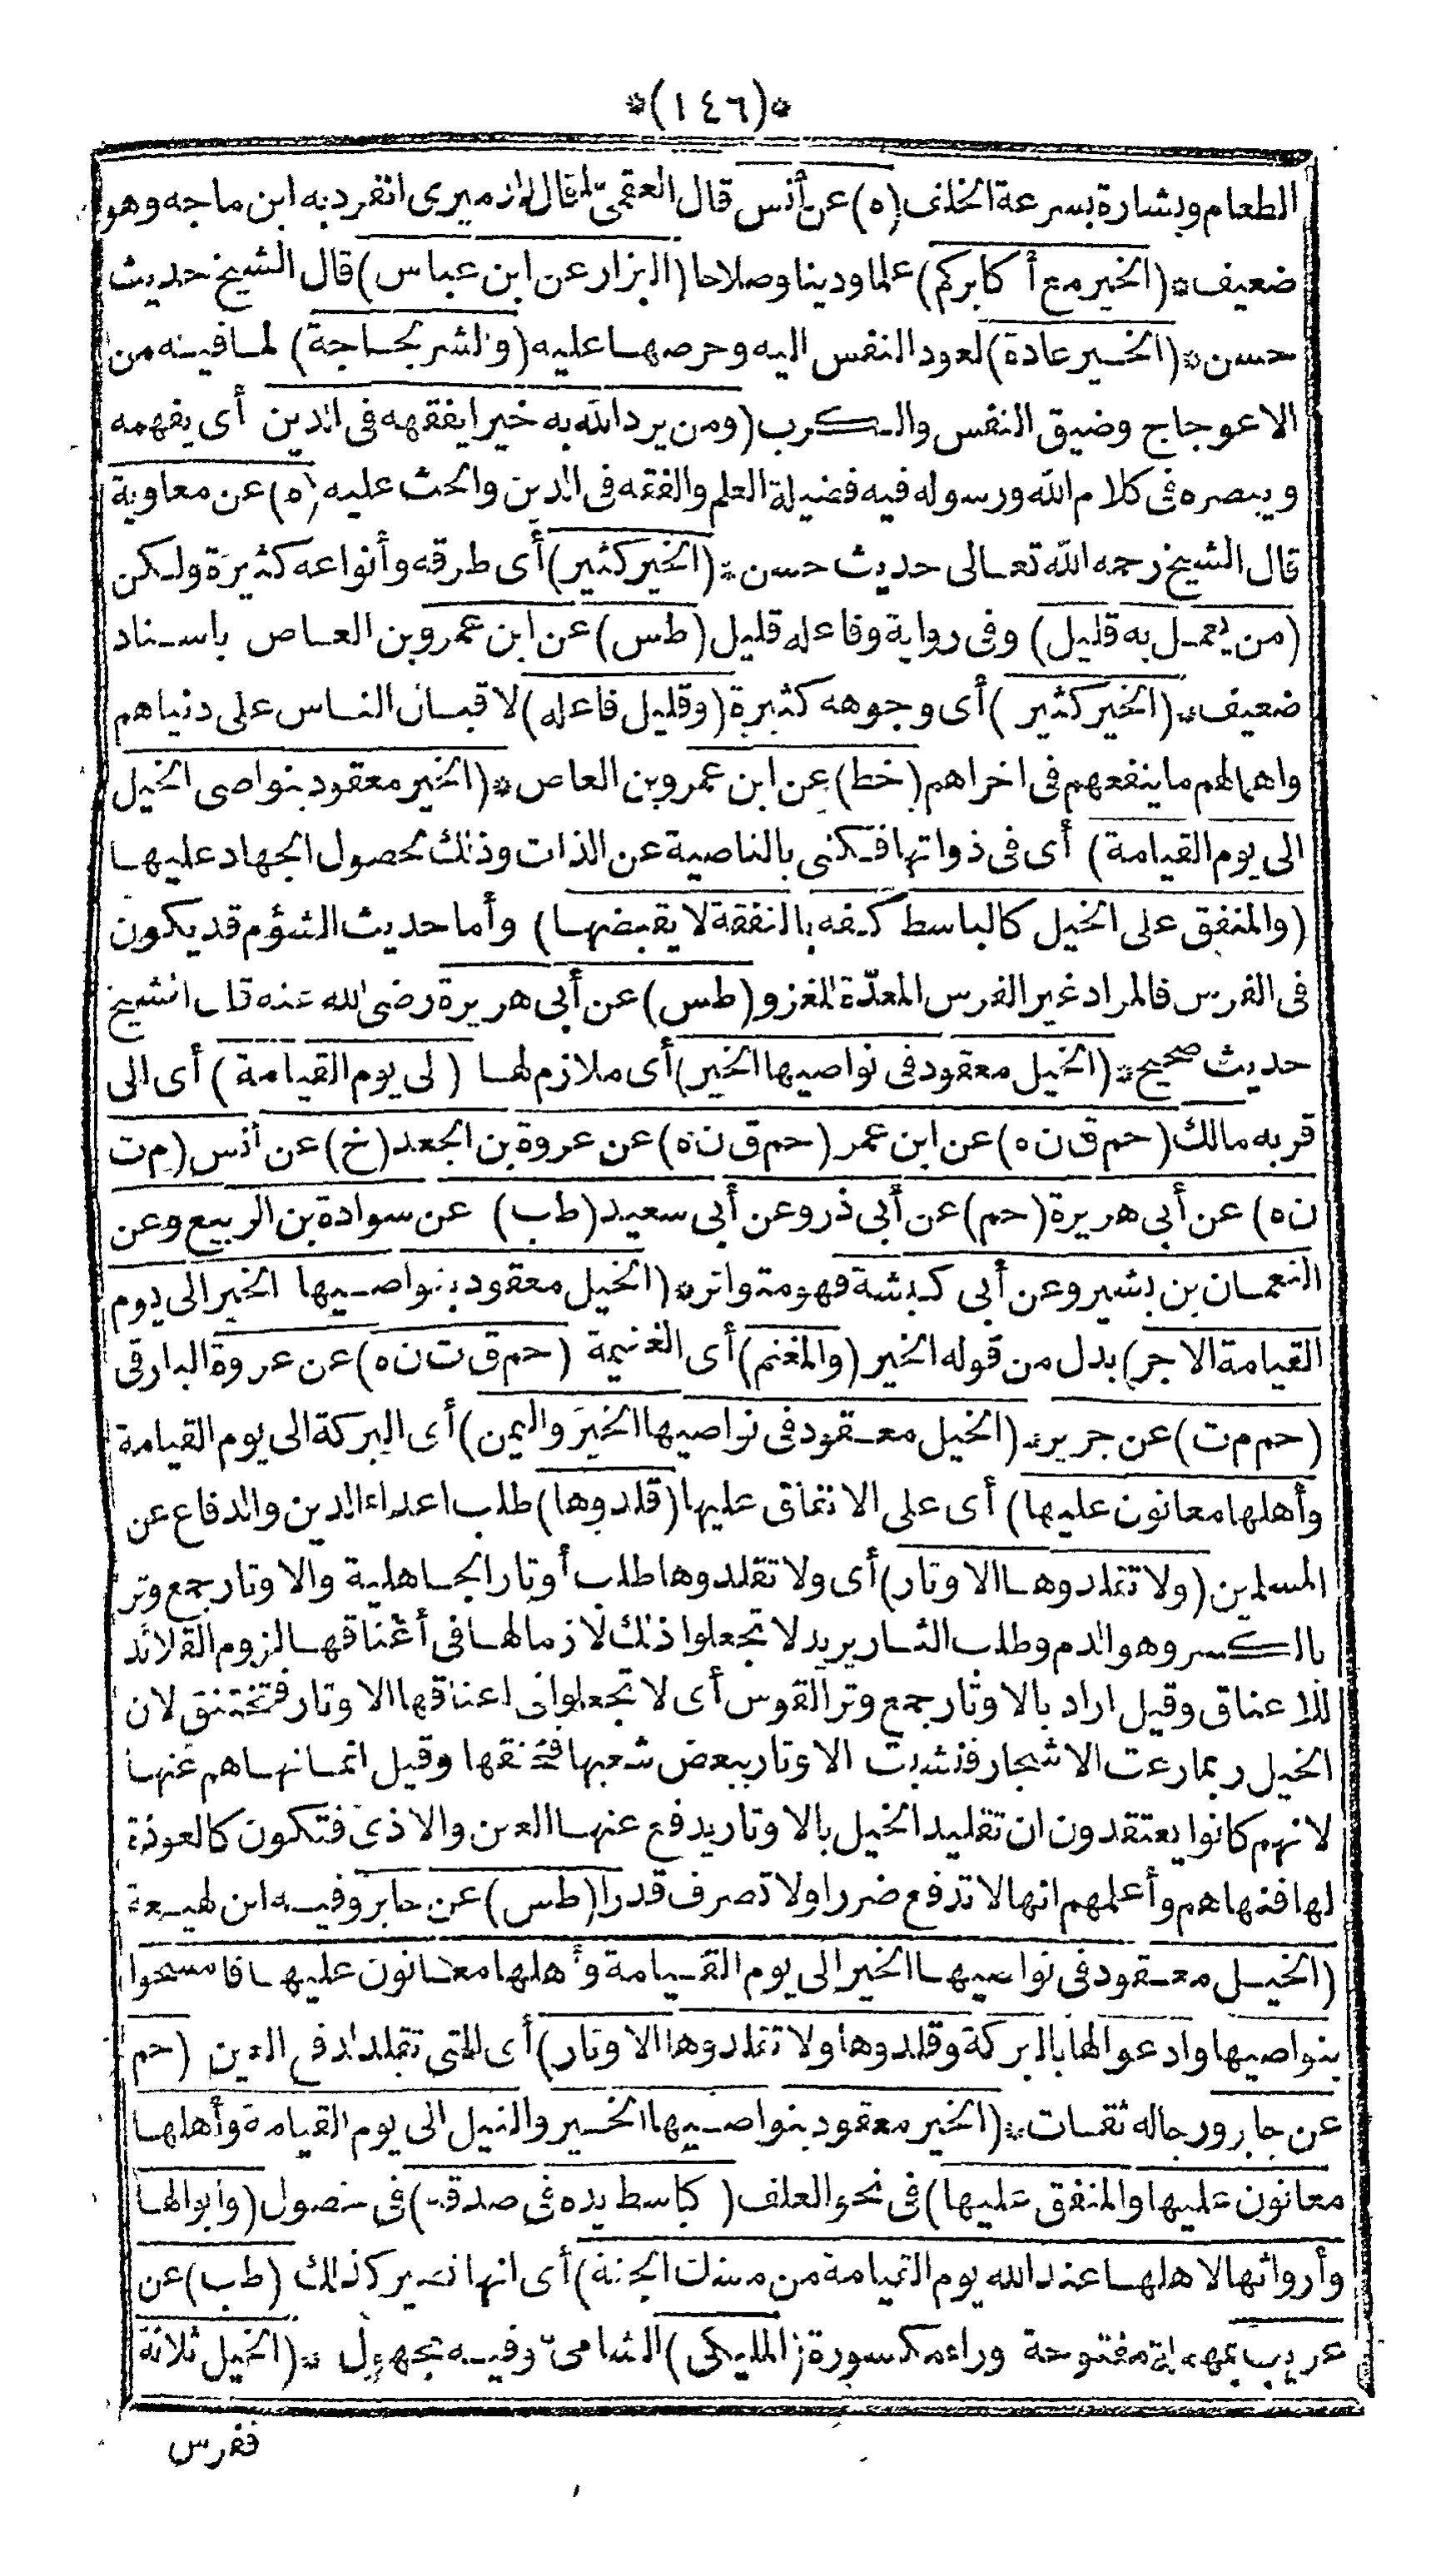 *(١٤٦)*
الطعام وبشارة بسرعة الخلف (ه) عن أنس قال العلقمى قال الدميرى انفرد به ابن ماجه وهو
ضعيف * (الخير مع أكابركم) علما ودينا وصلاحا (البزار عن ابن عباس) قال الشيخ حديث
حسن * (الخير عادة) لعود النفس اليه وحرصها عليه (والشر لجاجة) لما فيه من
الاعوجاج وضيق النفس والكرب (ومن يرد الله به خيرا يفقهه فى الدين أى يفهمه
ويبصره فى كلام الله ورسوله فيه فضيلة العلم والفقه فى الدين والحث عليه (ه) عن معاوية
قال الشيخ رحمه الله تعالى حديث حسن * (الخير كثير) أى طرقه وأنواعه كثيرة ولكن
(من يعمل به قليل) وفى رواية وفاعله قليل (طس) عن ابن عمرو بن العاص باسناد
ضعيف * (الخير كثير) أى وجوهه كثيرة (وقليل فاعله) لاقبال الناس على دنياهم
واهمالهم ما ينفعهم فى اخراهم (خط) عن ابن عمرو بن العاص * (الخير معقود بنواصى الخيل
الى يوم القيامة) أى فى ذواتها فكنى بالناصية عن الذات وذلك لحصول الجهاد عليها
(والمنفق على الخيل كالباسط كفه بالنفقة لا يقبضها) وأما حديث الشؤم قد يكون
فى الفرس فالمراد غير الفرس المعدّة للغزو (طس) عن أبى هريرة رضى الله عنه قال الشيخ
حديث صحيح * (الخيل معقود فى نواصيها الخير) أى ملازم لها (الى يوم القيامة) أى الى
قربه مالك (حم ق ن ه) عن ابن عمر (حم ق ن ه) عن عروة بن الجعد (خ) عن أنس (م ت
ن ه) عن أبى هريرة (حم) عن أبى ذر وعن أبى سعيد (طب) عن سوادة بن الربيع وعن
النعمان بن بشير وعن أبى كبشة فهو متواتر * (الخيل معقود بنواصيها الخير الى يوم
القيامة الاجر) بدل من قوله الخير (والمغنم) أى الغنيمة (حم ق ت ن ه) عن عروة البارقى
(حم م ت) عن جرير * (الخيل معقود فى نواصيها الخير واليمن) أى البركة الى يوم القيامة
وأهلها معانون عليها) أى على الانفاق عليها (قلدوها) طلب اعداء الدين والدفاع عن
المسلمين (ولا تقلدوها الاوتار) أى ولا تقلدوها طلب أوتار الجاهلية والاوتار جمع وتر
بالكسر وهو الدم وطلب الثار يريد لا تجعلوا ذلك لازما لها فى أعناقها لزوم القلائد
للاعناق وقيل اراد بالاوتار جمع وتر القوس أى لا تجعلوا فى اعناقها الاوتار فتختنق لان
الخيل ربما رعت الاشجار فنشبت الاوتار ببعض شعبها فتخنقها وقيل انما نهاهم عنها
لانهم كانوا يعتقدون ان تقليد الخيل بالاوتار يدفع عنها العين والاذى فتكون كالعوذة
لها فنهاهم وأعلمهم انها لا تدفع ضررا ولا تصرف قدرا (طس) عن جابر وفيه ابن لهيعة
(الخيل معقود فى نواصيها الخير الى يوم القيامة وأهلها معانون عليها فامسحوا
بنواصيها وادعوا لها بالبركة وقلدوها ولا تقلدوها الاوتار) أى التى تقلد لدفع العين (حم
عن جابر ورجاله ثقات * (الخير معقود بنواصيها الخير والنيل الى يوم القيامة وأهلها
معانون عليها والمنفق عليها) فى نحو العلف (كباسط يده فى صدقة) فى حصول (وأبوالها
وأرواثها لاهلها عند الله يوم القيامة من مسك الجنة) أى انها تصير كذلك (طب) عن
عريب بمهملة مفتوحة وراء مكسورة (المليكى) الشامى وفيه مجهول * (الخيل ثلاثة
ففرس